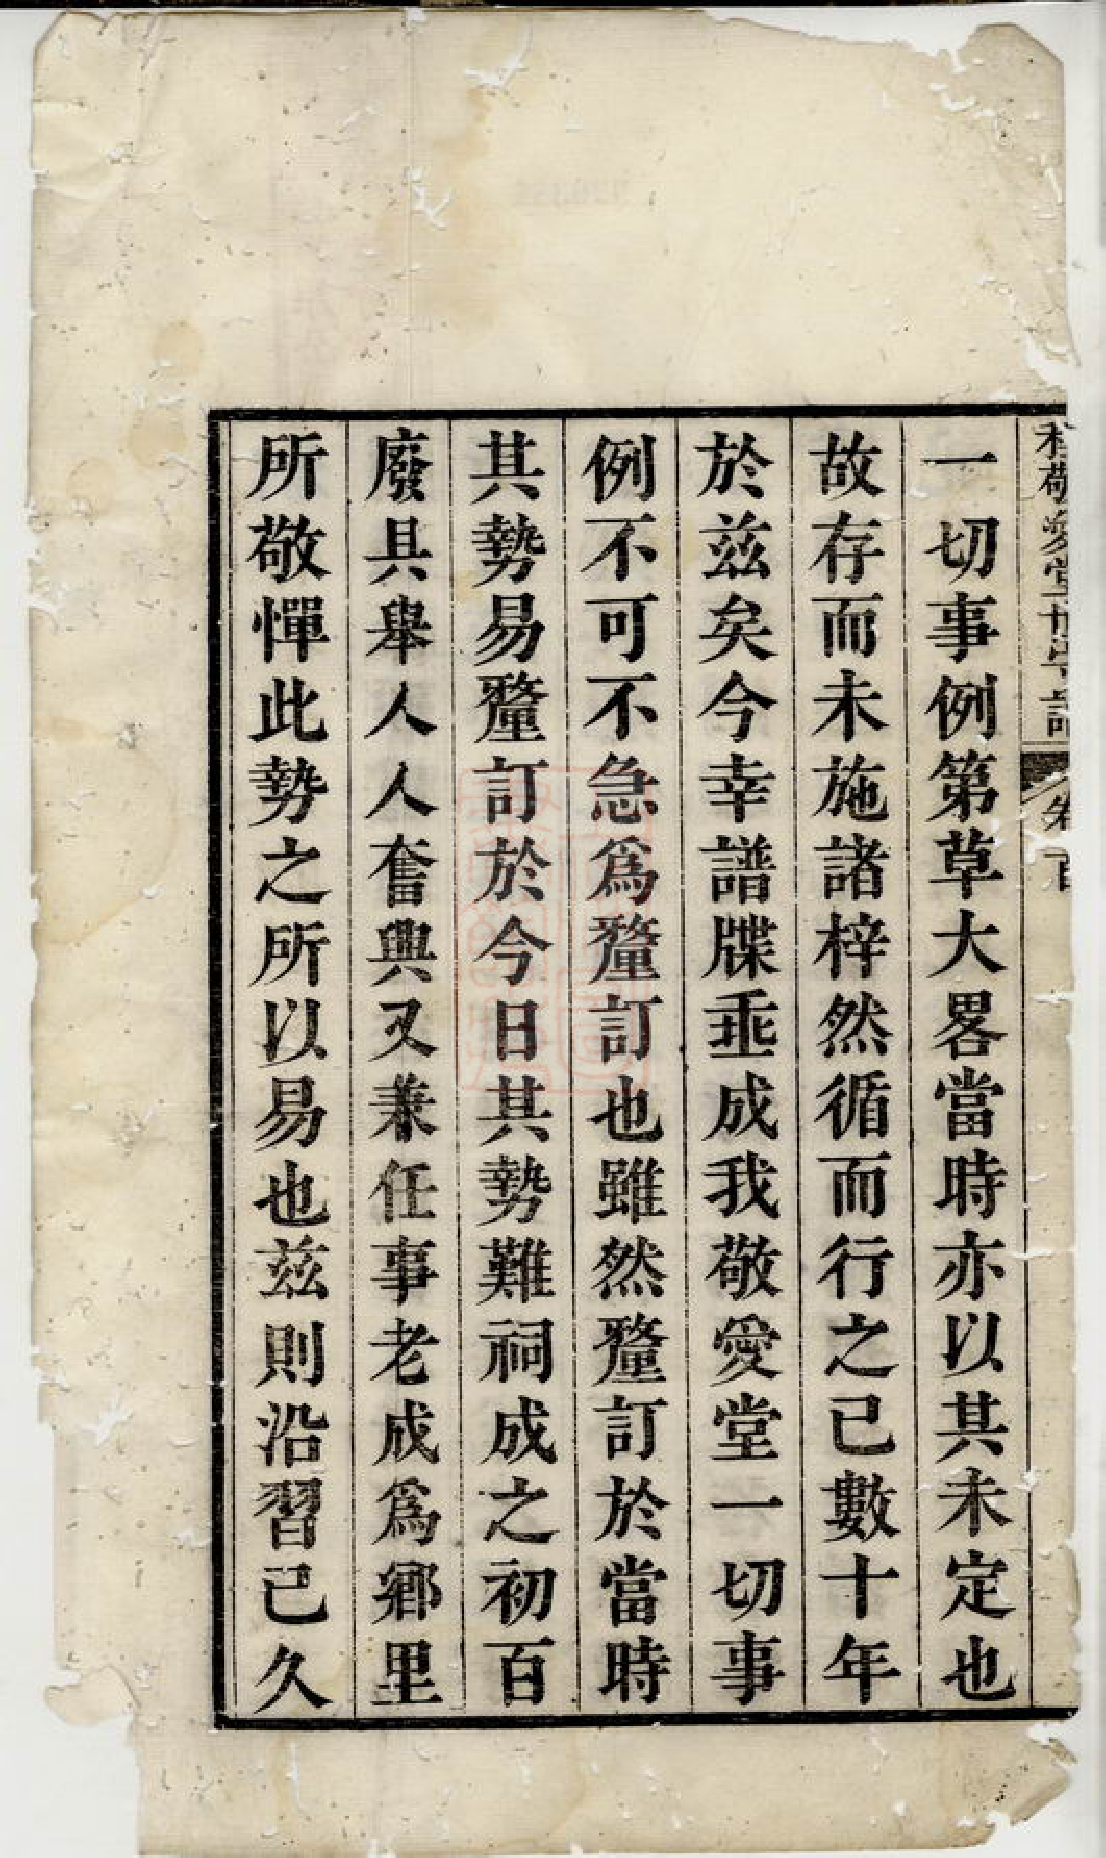 程敬愛堂世守記 卷首
一切事例第草大畧當時亦以其未定也
故存而未施諸梓然循而行之已數十年
於兹矣今幸譜牒垂成我敬愛堂一切事
例不可不急爲釐訂也雖然釐訂於當時
其勢易釐訂於今日其勢難祠成之初百
廢具舉人人奮興又兼任事老成爲鄉里
所敬憚此勢之所以易也兹則沿習已久